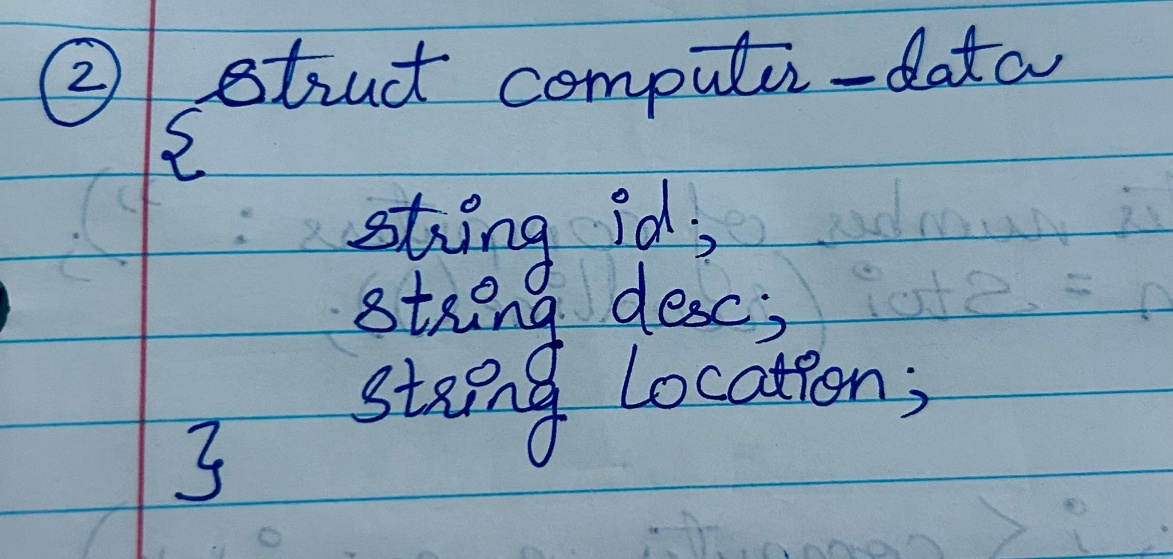 ② struct computer-data
{
string id;
string desc;
string location;
}